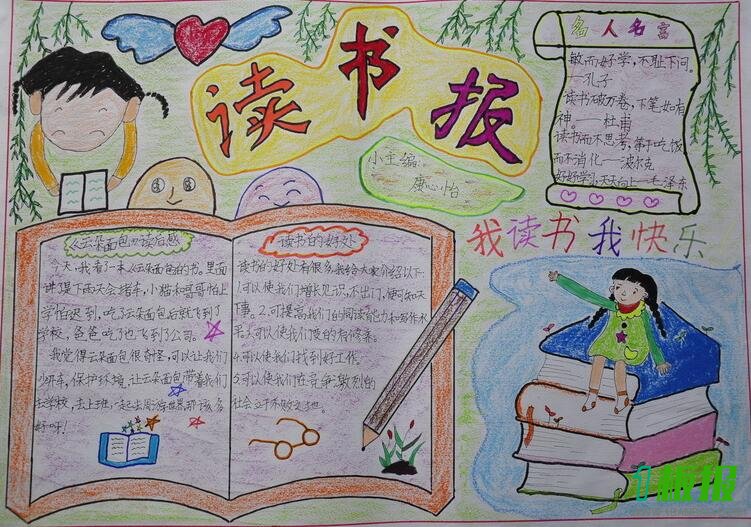 读书报
小主编:
康心怡
名人名言
敏而好学,不耻下问。
—孔子
读书破万卷,下笔如有
神。——杜甫
读书而不思考,等于吃饭
而不消化——波尔克
好好学习天天向上—毛泽东
我读书我快乐
《云朵面包》读后感
今天,我看了一本《云朵面包》的书,里面
讲了下雨天会堵车,小猫和哥哥怕上
学怕迟到,吃了云朵面包后就飞到了
学校,爸爸吃了也飞到了公司。
我觉得云朵面包很奇怪,可以让我们
少开车,保护环境,让云朵面包带着我们
去学校,去上班,一起出周游世界,那该多
好呀!
读书的好处
读书的好处有很多,我给大家介绍以下:
1.可以使我们增长见识,不出门,便可知天
下事。2.可提高我们的阅读能力和写作水
平。可以使我们变的有修养。
4.可以使我们找到好工作。
5.可以使我们在竞争激烈的
社会立于不败之地。
板报